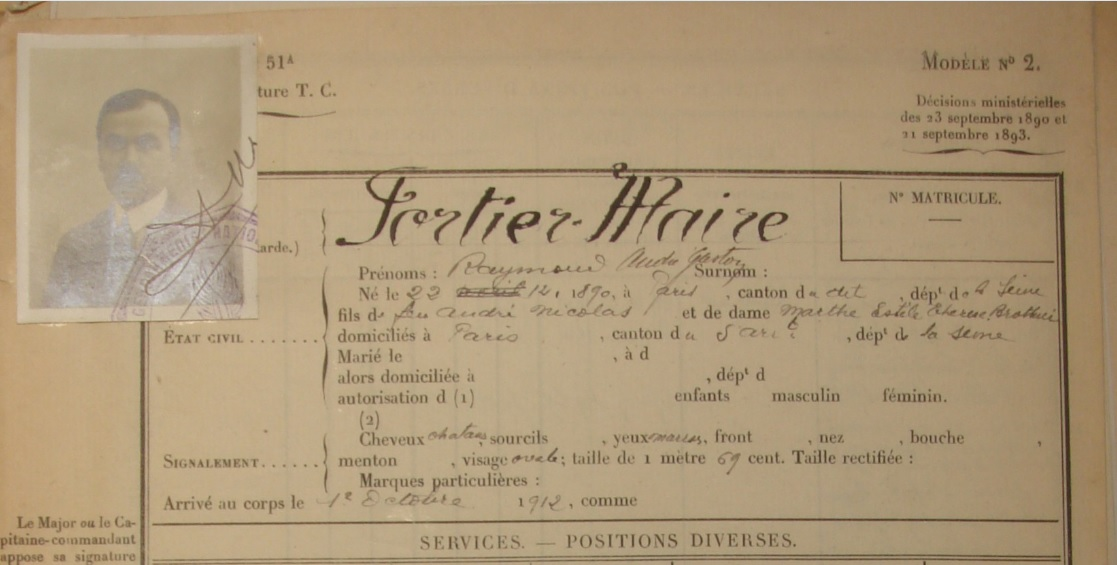 51ᴬ
ture T. C.
MODÈLE Nº 2.
Décisions ministérielles
des 23 septembre 1890 et
21 septembre 1893.
Nº MATRICULE.
Fortier-Maire
arde.)
Prénoms : Raymond André Gaston Surnom :
Né le 22 12, 1890, à Paris , canton du dit , dépᵗ de la Seine
fils de feu André Nicolas et de dame Marthe
ÉTAT CIVIL ....... domiciliés à Paris , canton du , dépᵗ d la Seine
Marié le , à d
alors domiciliée à , dépᵗ d
autorisation d (1) enfants masculin féminin.
(2)
Cheveux chatains, sourcils , yeux , front , nez , bouche ,
SIGNALEMENT ..... menton , visage ovale; taille de 1 mètre 69 cent. Taille rectifiée :
Marques particulières :
Arrivé au corps le 1ᵉ Octobre 1912, comme
Le Major ou le Ca-
pitaine-commandant
appose sa signature
SERVICES. — POSITIONS DIVERSES.